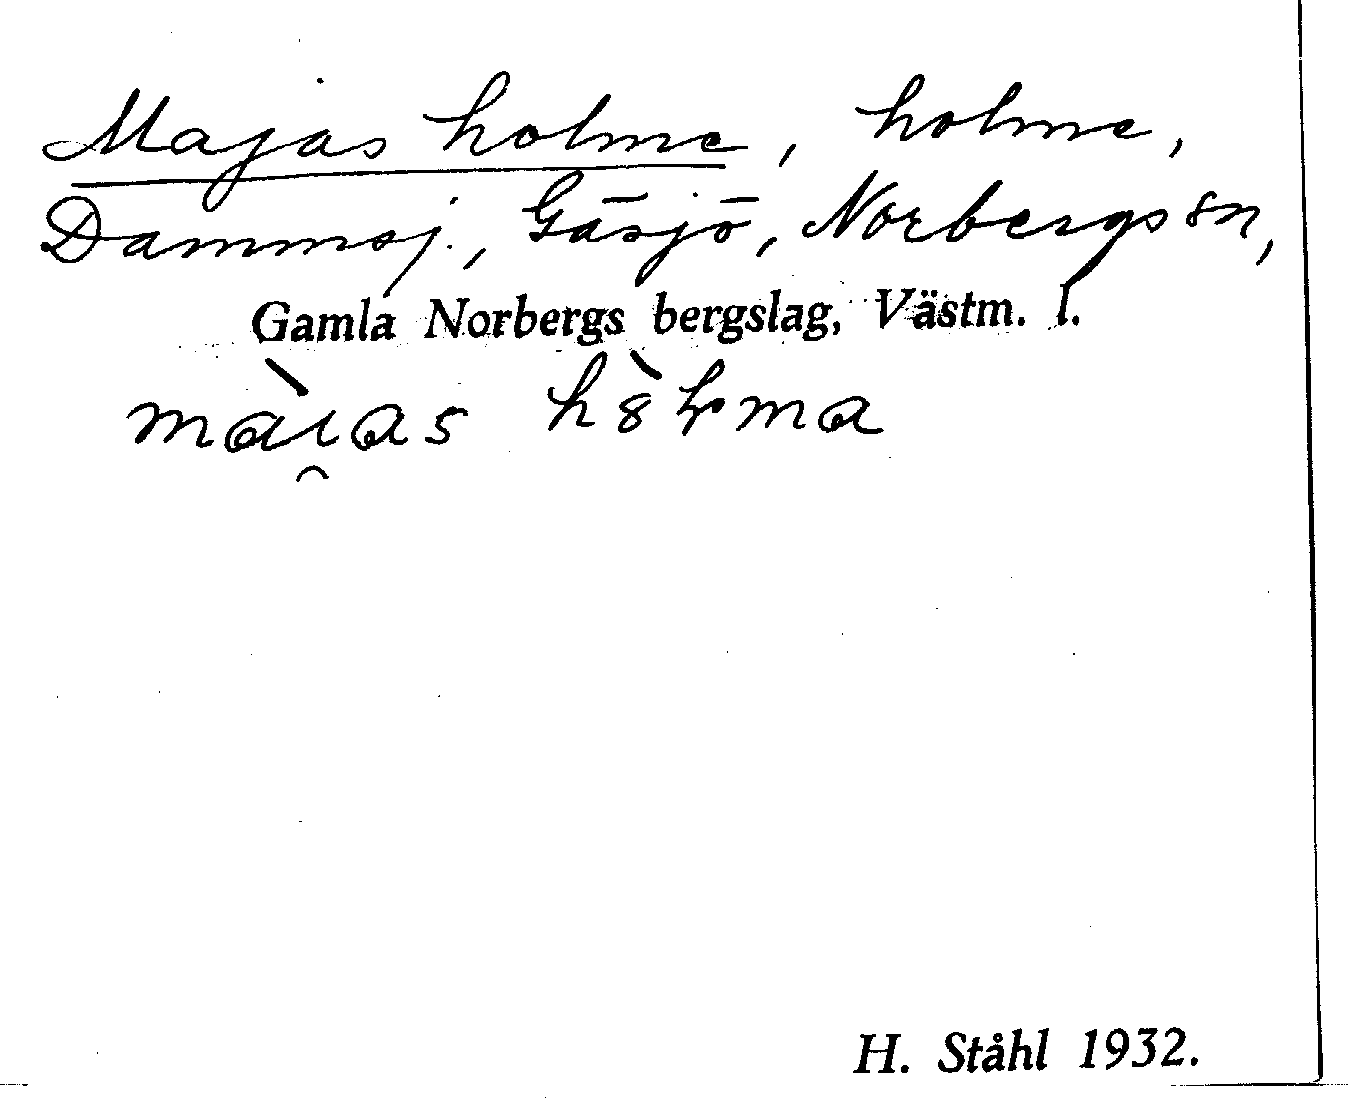 Majas holme, holme,
Dammsj., Gäsjö, Norbergs sn,
Gamla Norbergs bergslag, Västm. l.
H. Ståhl 1932.